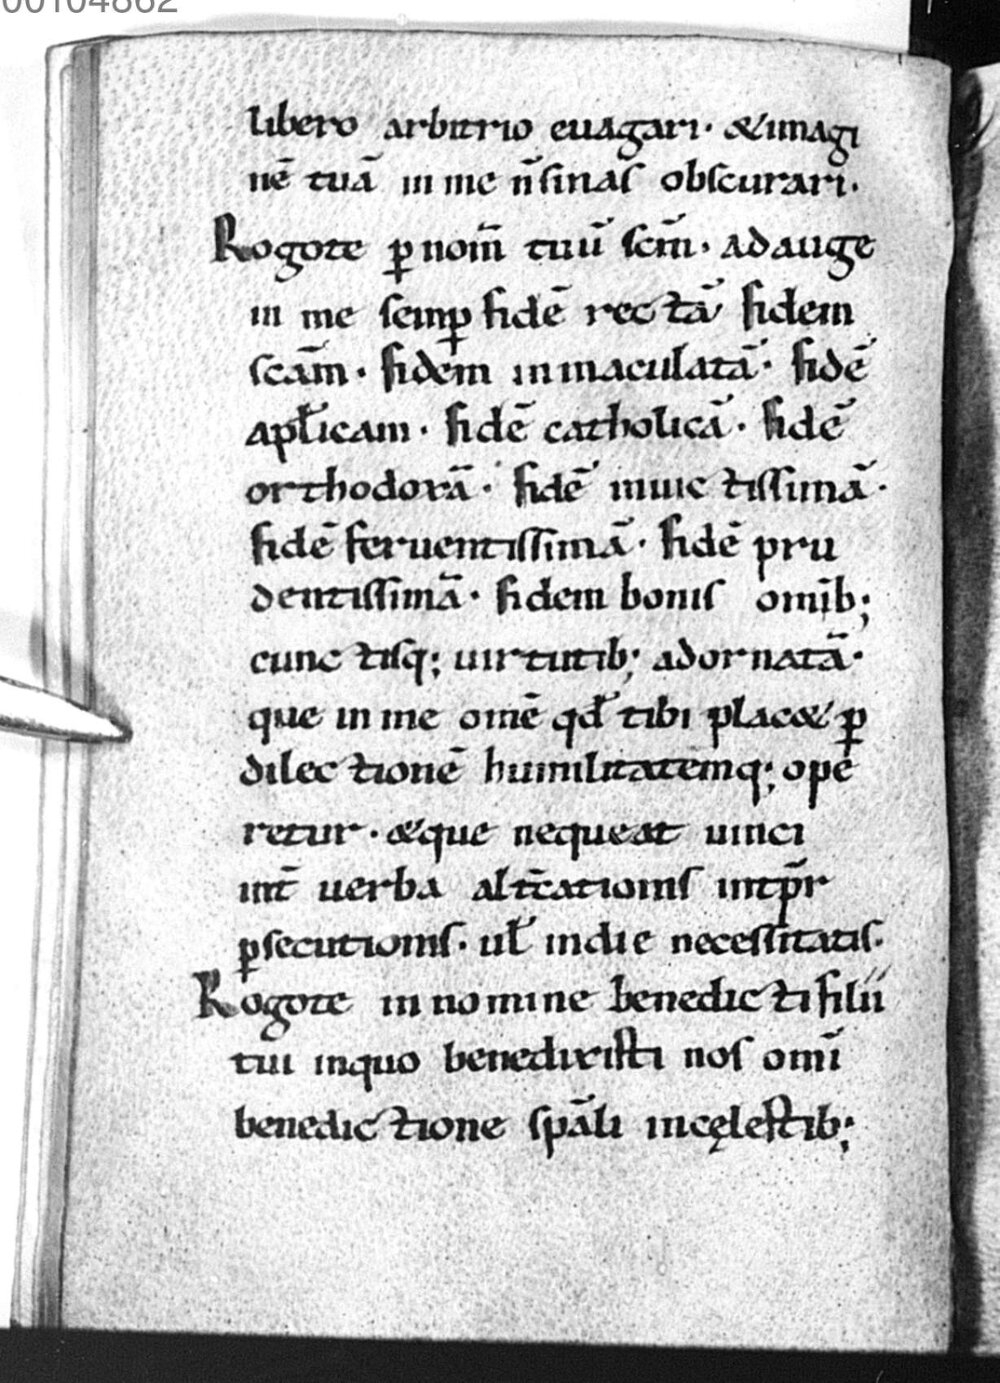 00104862
libero arbitrio euagari· &imagi
nē tuā in me n̄ sinaſ obſcurari·
Rogote ꝑ nom̄ tuū ſcm̄· adauge
in me ſemꝑ fidē rectā fidem
ſcām· fidēm inmaculatā· fidē
apl̄icam· fidē catholicā· fidē
orthodoxā· fidē inuictiſſimā·
fidē feruentiſſimā· fidē pru
dentiſſimā· fidem boniſ om̄ib;
cunctiſq; uirtutib; adornatā·
que in me om̄e qd̄ tibi plac& ꝑ
dilectionē humilitatemq; ope
retur· &que nequeat uinci
int̄ uerba alt̄cationiſ int̄p̄r
ꝑſecutioniſ· ul̄ indie neceſſitatiſ·
Rogote in nomine benedicti filii
tui inquo benedixiſti noſ om̄i
benedictione ſpāli incęleſtib;